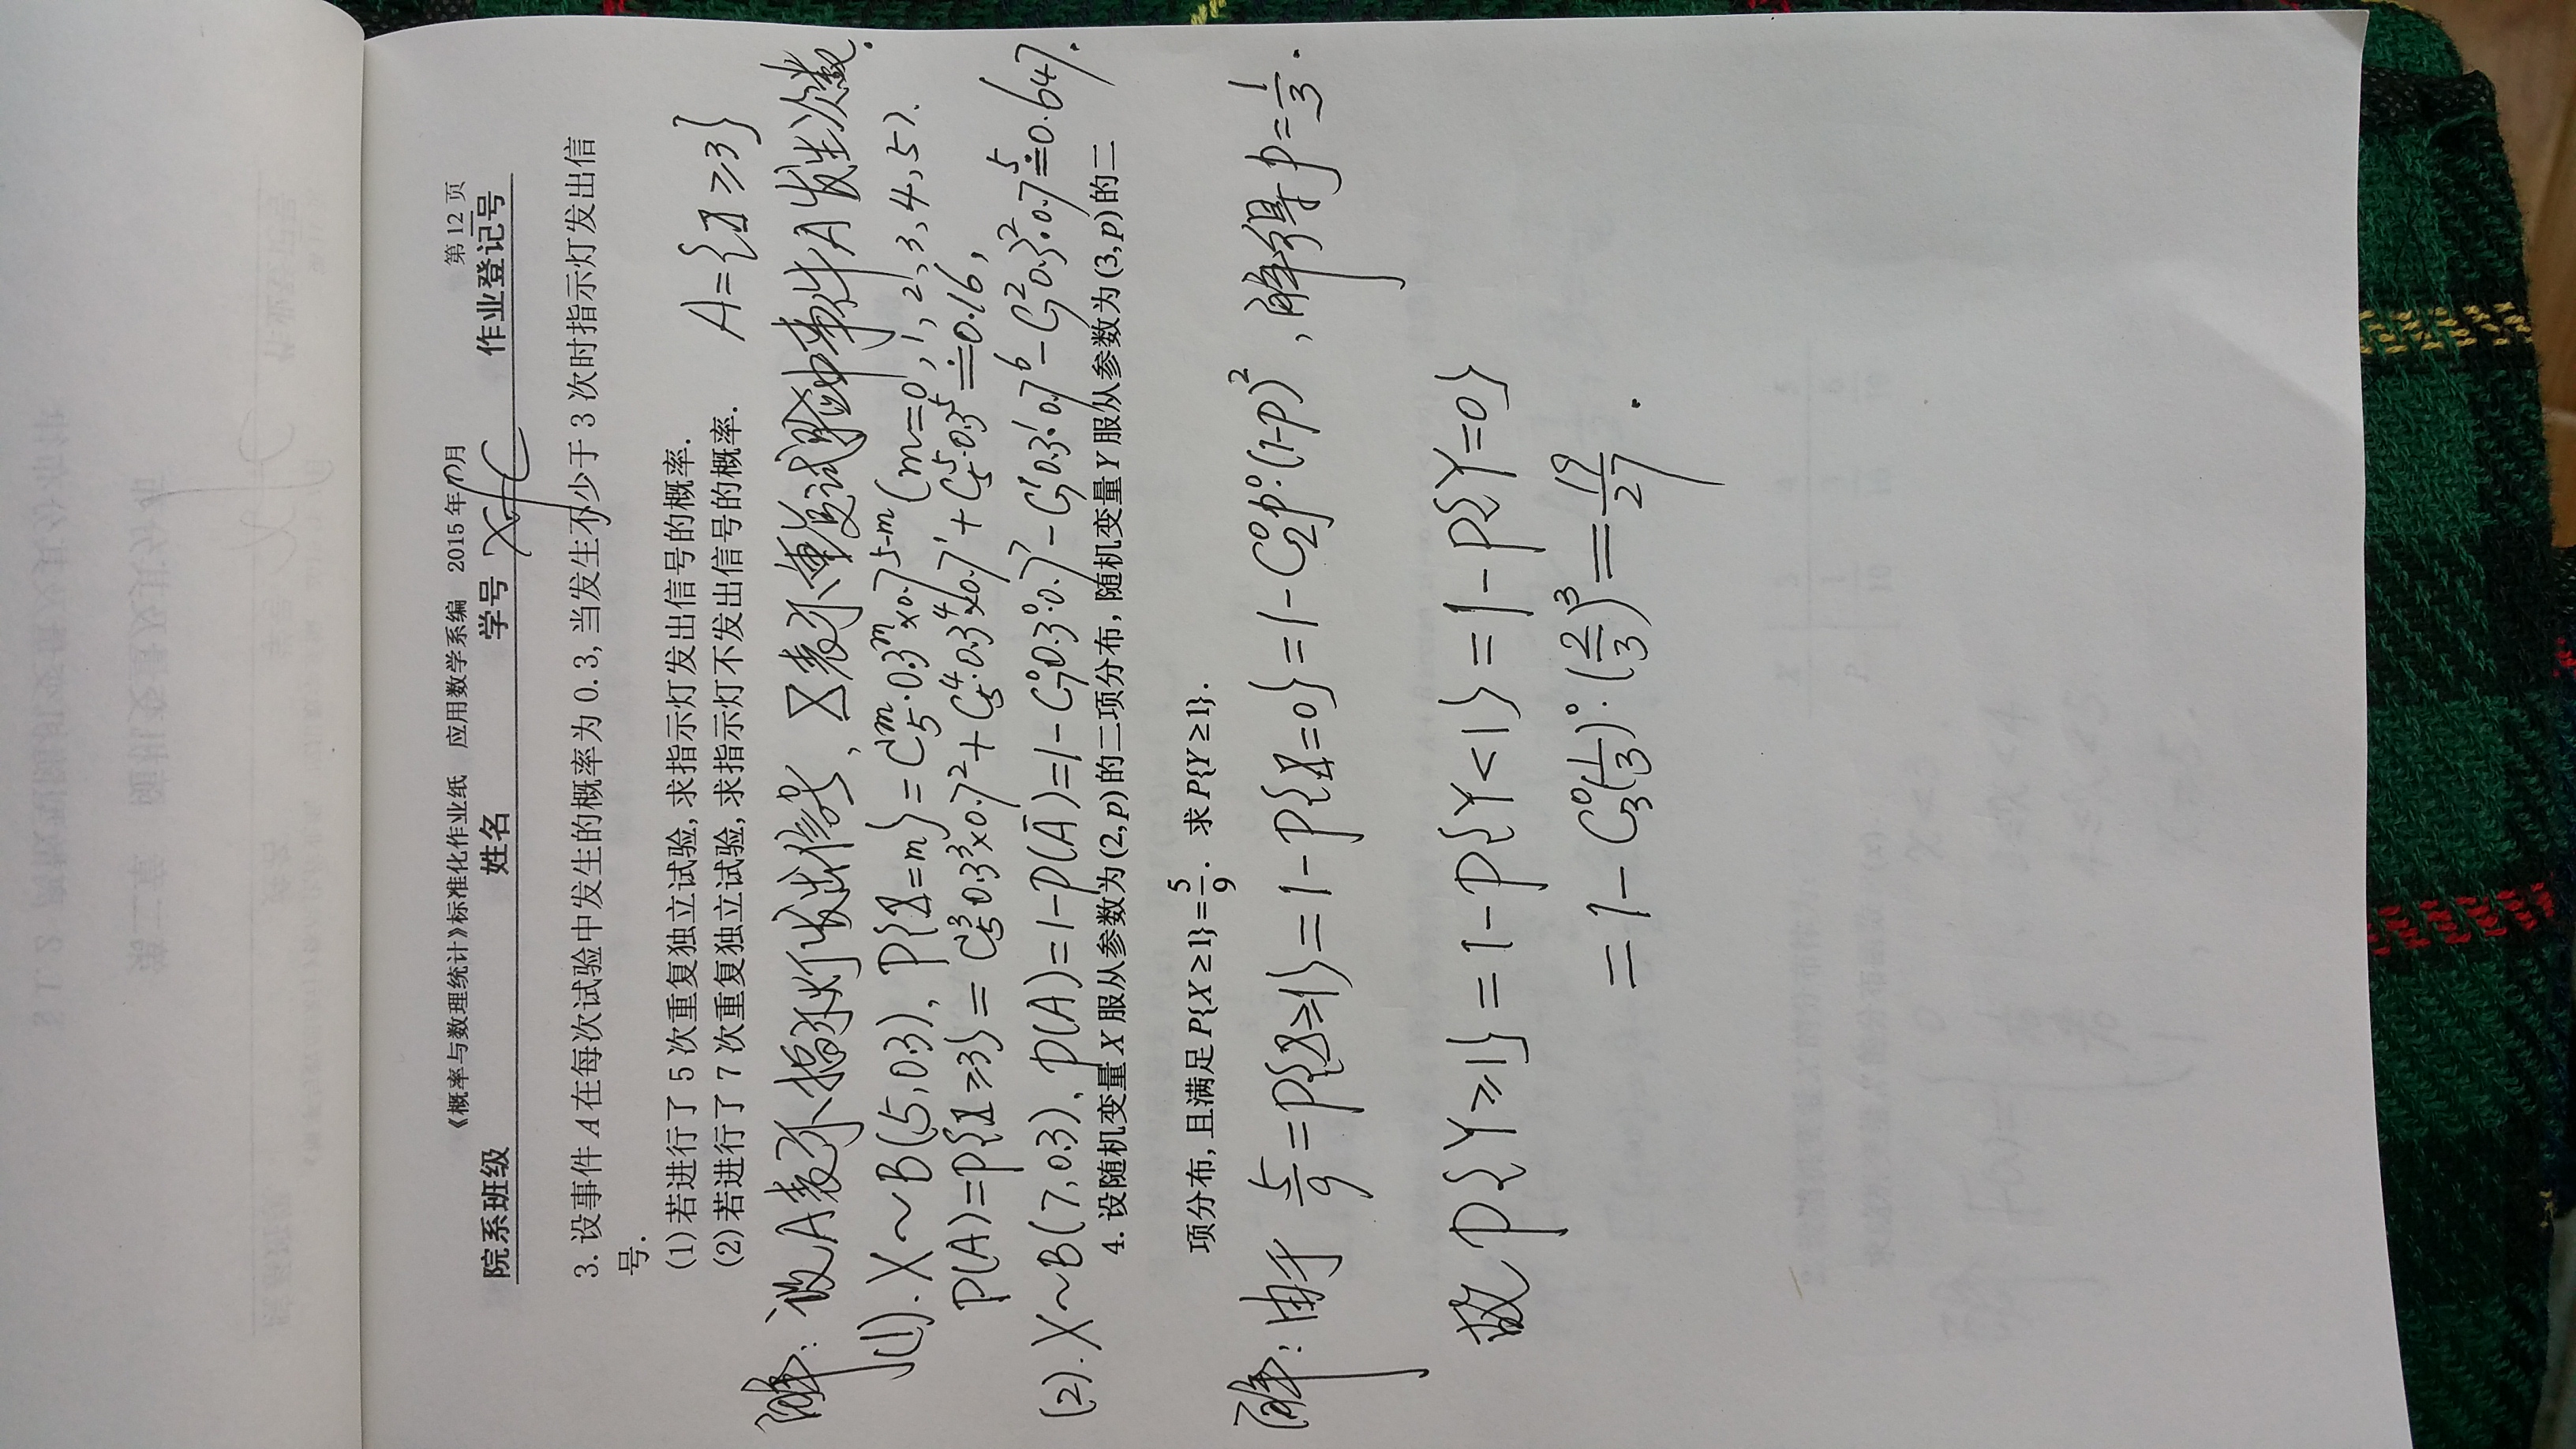 《概率与数理统计》标准化作业纸 应用数学系编 2015年7月 第12页
院系班级 姓名 学号 作业登记号
3. 设事件A在每次试验中发生的概率为0.3,当发生不少于3次时指示灯发出信
号.
(1)若进行了5次重复独立试验,求指示灯发出信号的概率.
(2)若进行了7次重复独立试验,求指示灯不发出信号的概率.
A={X≥3}
解:设A表示指示灯发出信号,X表示重复试验中事件A发生次数.
(1). X~B(5,0.3), P{X=m}=C₅ᵐ·0.3ᵐ×0.7⁵⁻ᵐ(m=0,1,2,3,4,5).
P(A)=P{X≥3}=C₅³0.3³×0.7²+C₅⁴·0.3⁴×0.7¹+C₅⁵·0.3⁵≐0.16,
(2). X~B(7,0.3), P(A)=1-P(Ā)=1-C₇⁰0.3⁰·0.7⁷-C₇¹0.3¹·0.7⁶-C₇²0.3²·0.7⁵≐0.647.
4. 设随机变量X服从参数为(2,p)的二项分布,随机变量Y服从参数为(3,p)的二
项分布,且满足P{X≥1}=5/9. 求P{Y≥1}.
解:由于 5/9=P{X≥1}=1-P{X=0}=1-C₂⁰p⁰·(1-p)²,解得p=1/3.
故 P{Y≥1}=1-P{Y<1}=1-P{Y=0}
=1-C₃⁰(1/3)⁰·(2/3)³=19/27.